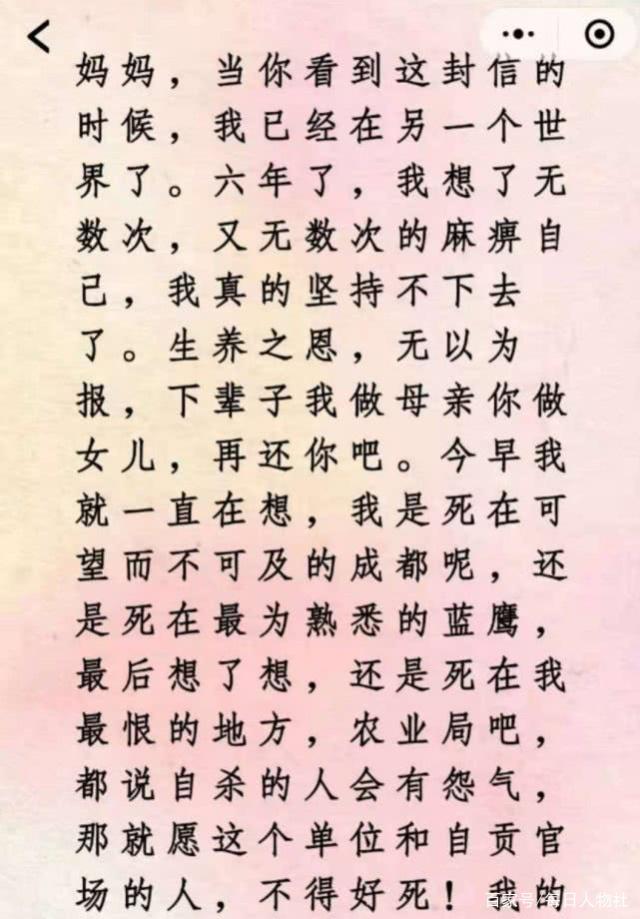 妈妈，当你看到这封信的
时候，我已经在另一个世
界了。六年了，我想了无
数次，又无数次的麻痹自
己，我真的坚持不下去
了。生养之恩，无以为
报，下辈子我做母亲你做
女儿，再还你吧。今早我
就一直在想，我是死在可
望而不可及的成都呢，还
是死在最为熟悉的蓝鹰，
最后想了想，还是死在我
最恨的地方，农业局吧，
都说自杀的人会有怨气，
那就愿这个单位和自贡官
场的人，不得好死！我的
百家号/每日人物社